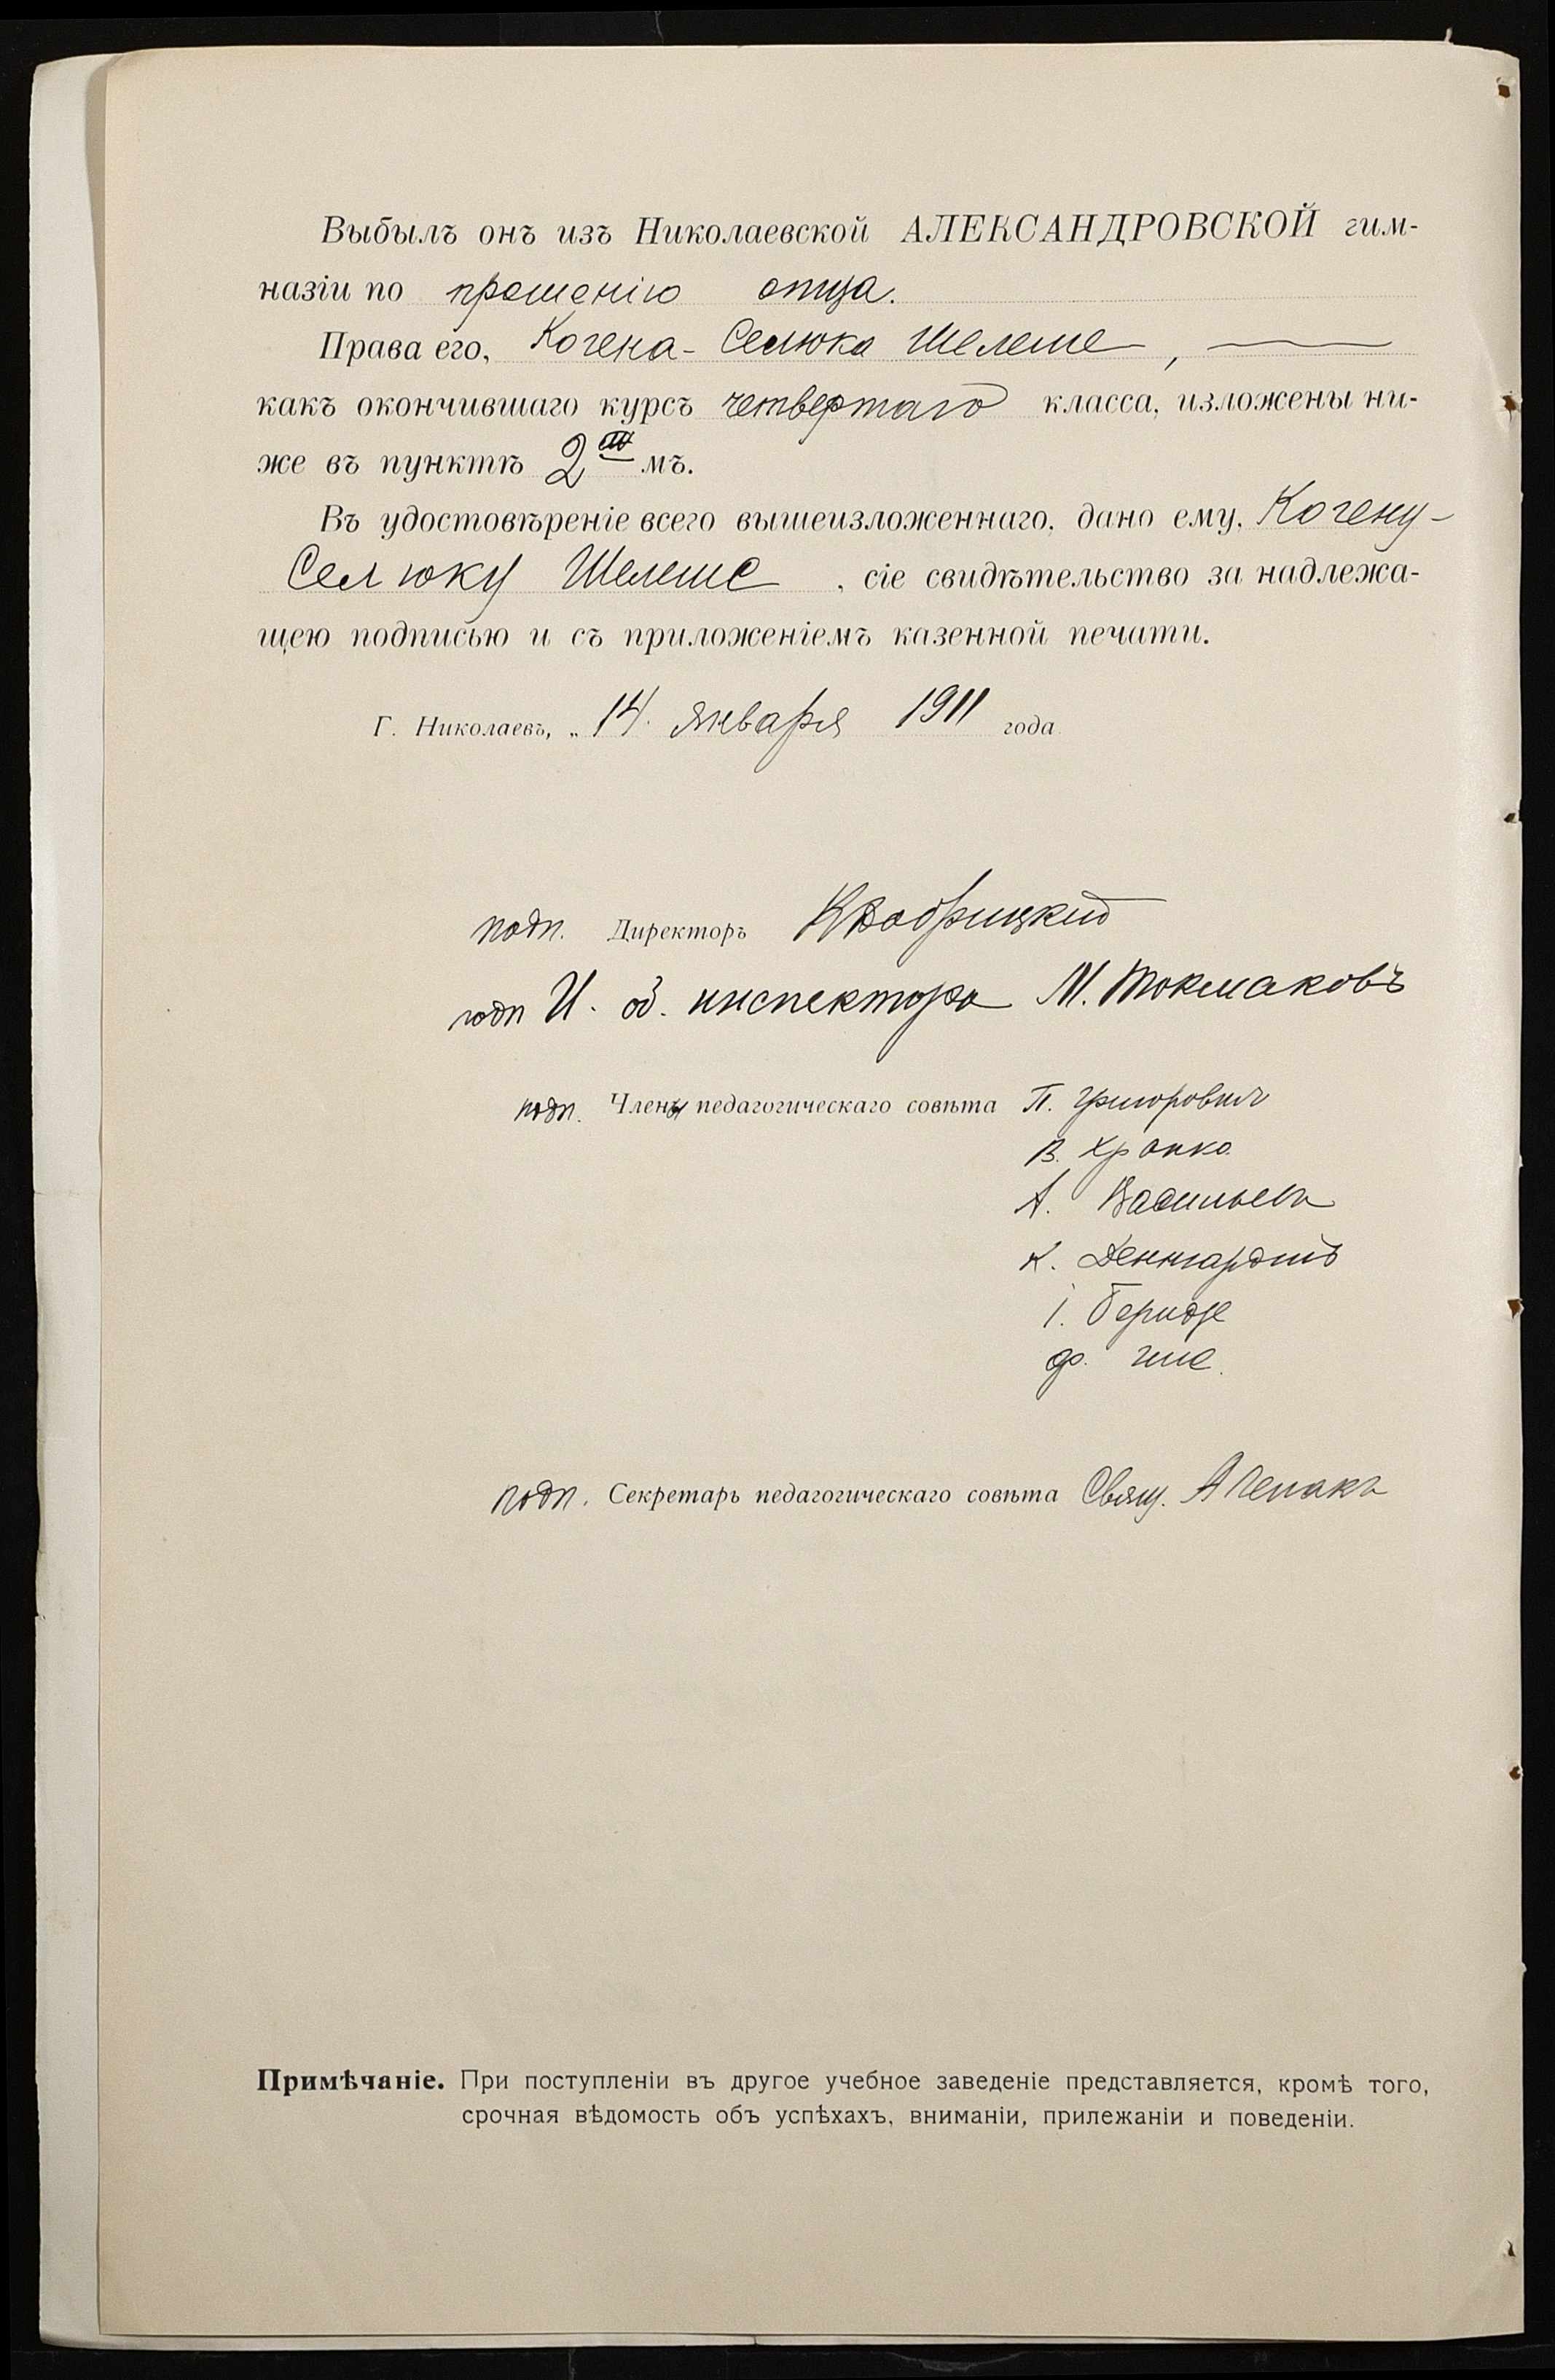 Выбылъ онъ изъ Николаевской АЛЕКСАНДРОВСКОЙ гим-
назіи по прошенію отца.
Права его, Когена-Селюка Шелеме, —
какъ окончившаго курсъ четвертаго класса, изложены ни-
же въ пунктѣ 2 мъ.
Въ удостовѣреніе всего вышеизложеннаго, дано ему, Когену-
Селюку Шелеме, сіе свидѣтельство за надлежа-
щею подписью и съ приложеніемъ казенной печати.
Г. Николаевъ, „ 14. января 1911 года
подп. Директоръ К Добрицкій
подп И. об. инспектора М. Токмаковъ
подп. Члены педагогическаго совѣта П. Григоровичъ
В. Храпко
А. Васильевъ
К. Денгардтъ
І. Беридзе
Ф.
подп. Секретарь педагогическаго совѣта Свящ. А Чепакъ
Примѣчаніе. При поступленіи въ другое учебное заведеніе представляется, кромѣ того,
срочная вѣдомость объ успѣхахъ, вниманіи, прилежаніи и поведеніи.